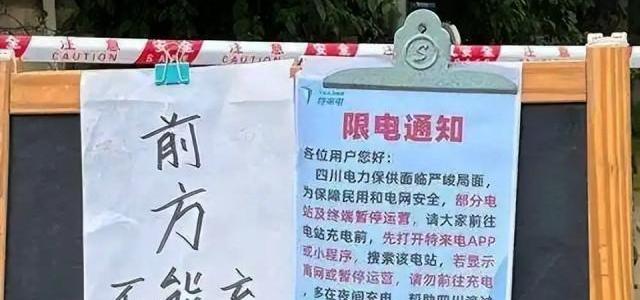 安全 注意 安全 注意 安全 注意 安全
CAUTION CAUTION CAUTION
前
方
不能充
特来电
限电通知
各位用户您好：
四川电力保供面临严峻局面，
为保障民用和电网安全，部分电
站及终端暂停运营，请大家前往
电站充电前，先打开特来电APP
或小程序，搜索该电站，若显示
离网或暂停运营，请勿前往充电
，多在夜间充电，帮助四川渡过